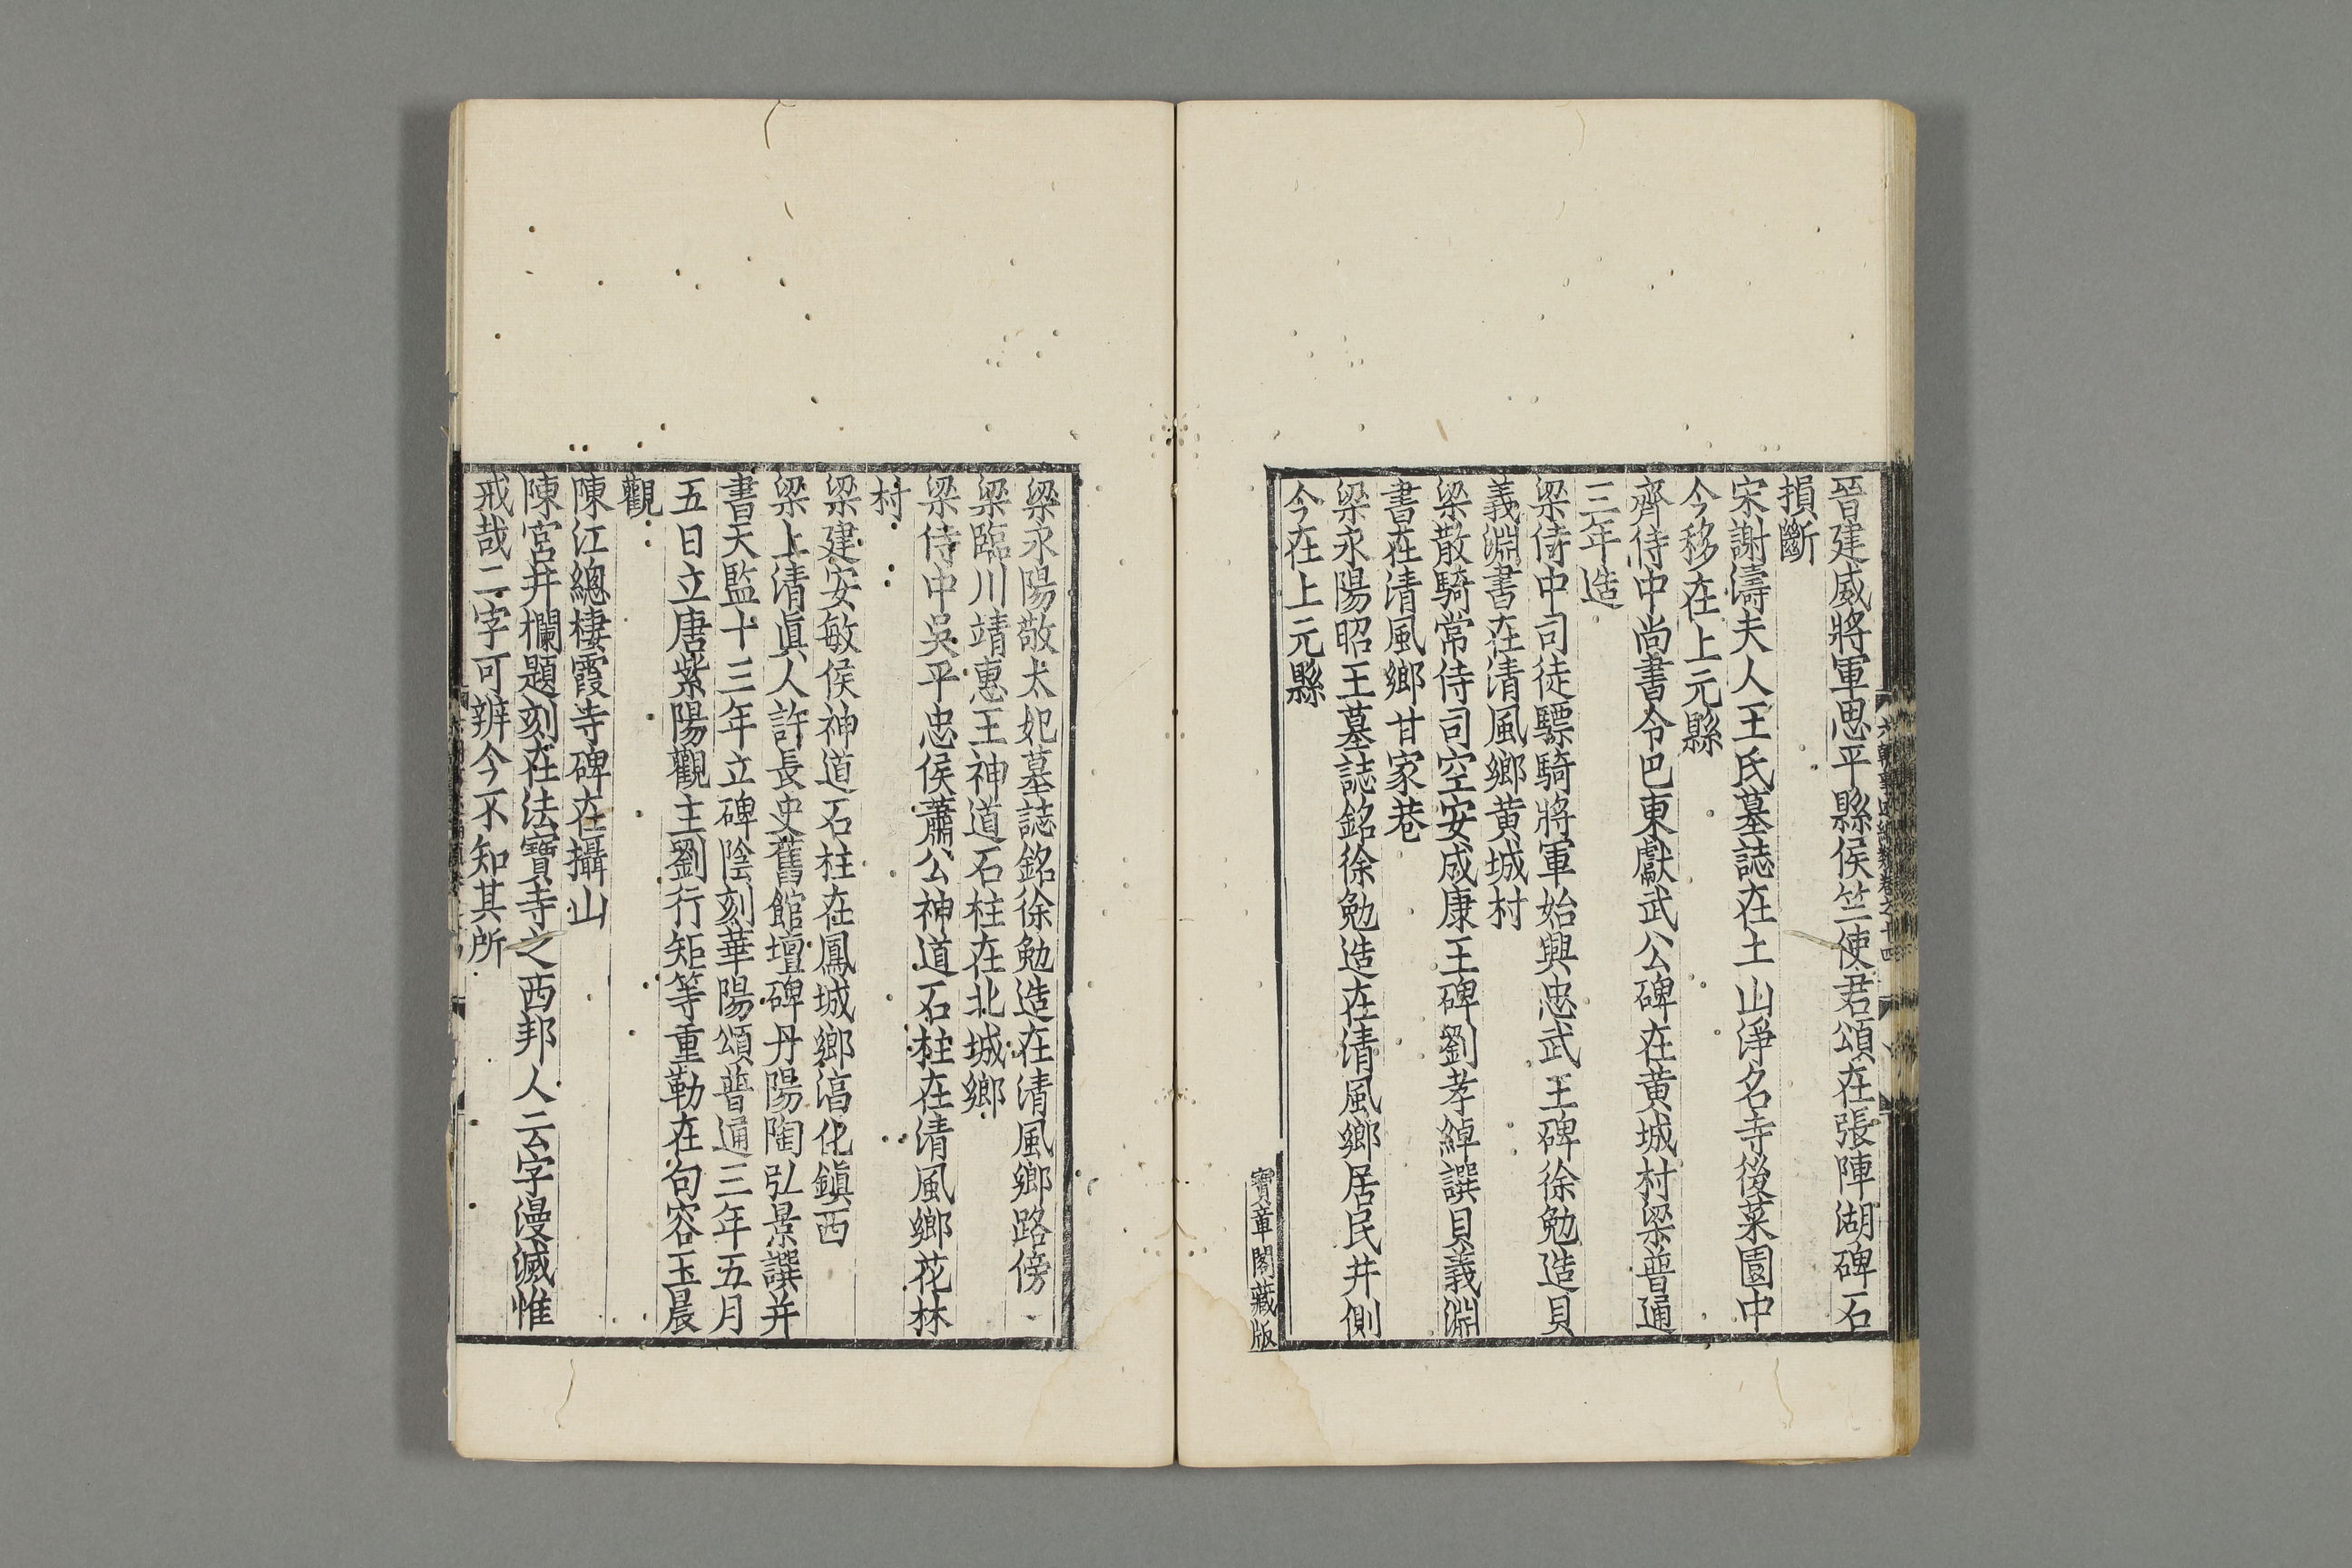 晉建威將軍思平縣侯竺使君頌在張陣湖碑石
損斷
宋謝濤夫人王氏墓誌在土山淨名寺後菜園中
今移在上元縣
齊侍中尚書令巴東獻武公碑在黃城村梁普通
三年造
梁侍中司徒驃騎將軍始興忠武王碑徐勉造貝
義淵書在清風鄉黃城村
梁散騎常侍司空安成康王碑劉孝綽譔貝義淵
書在清風鄉甘家巷
梁永陽昭王墓誌銘徐勉造在清風鄉居民井側
今在上元縣
寶章閣藏版
梁永陽敬太妃墓誌銘徐勉造在清風鄉路傍
梁臨川靖惠王神道石柱在北城鄉
梁侍中吳平忠侯蕭公神道石柱在清風鄉花林
村
梁建安敏侯神道石柱在鳳城鄉淳化鎭西
梁上清眞人許長史舊館壇碑丹陽陶弘景譔并
書天監十三年立碑陰刻華陽頌普通三年五月
五日立唐紫陽觀主劉行矩等重勒在句容玉晨
觀
陳江總棲霞寺碑在攝山
陳宮井欄題刻在法寶寺之西邦人云字漫滅惟
戒哉二字可辨今不知其所